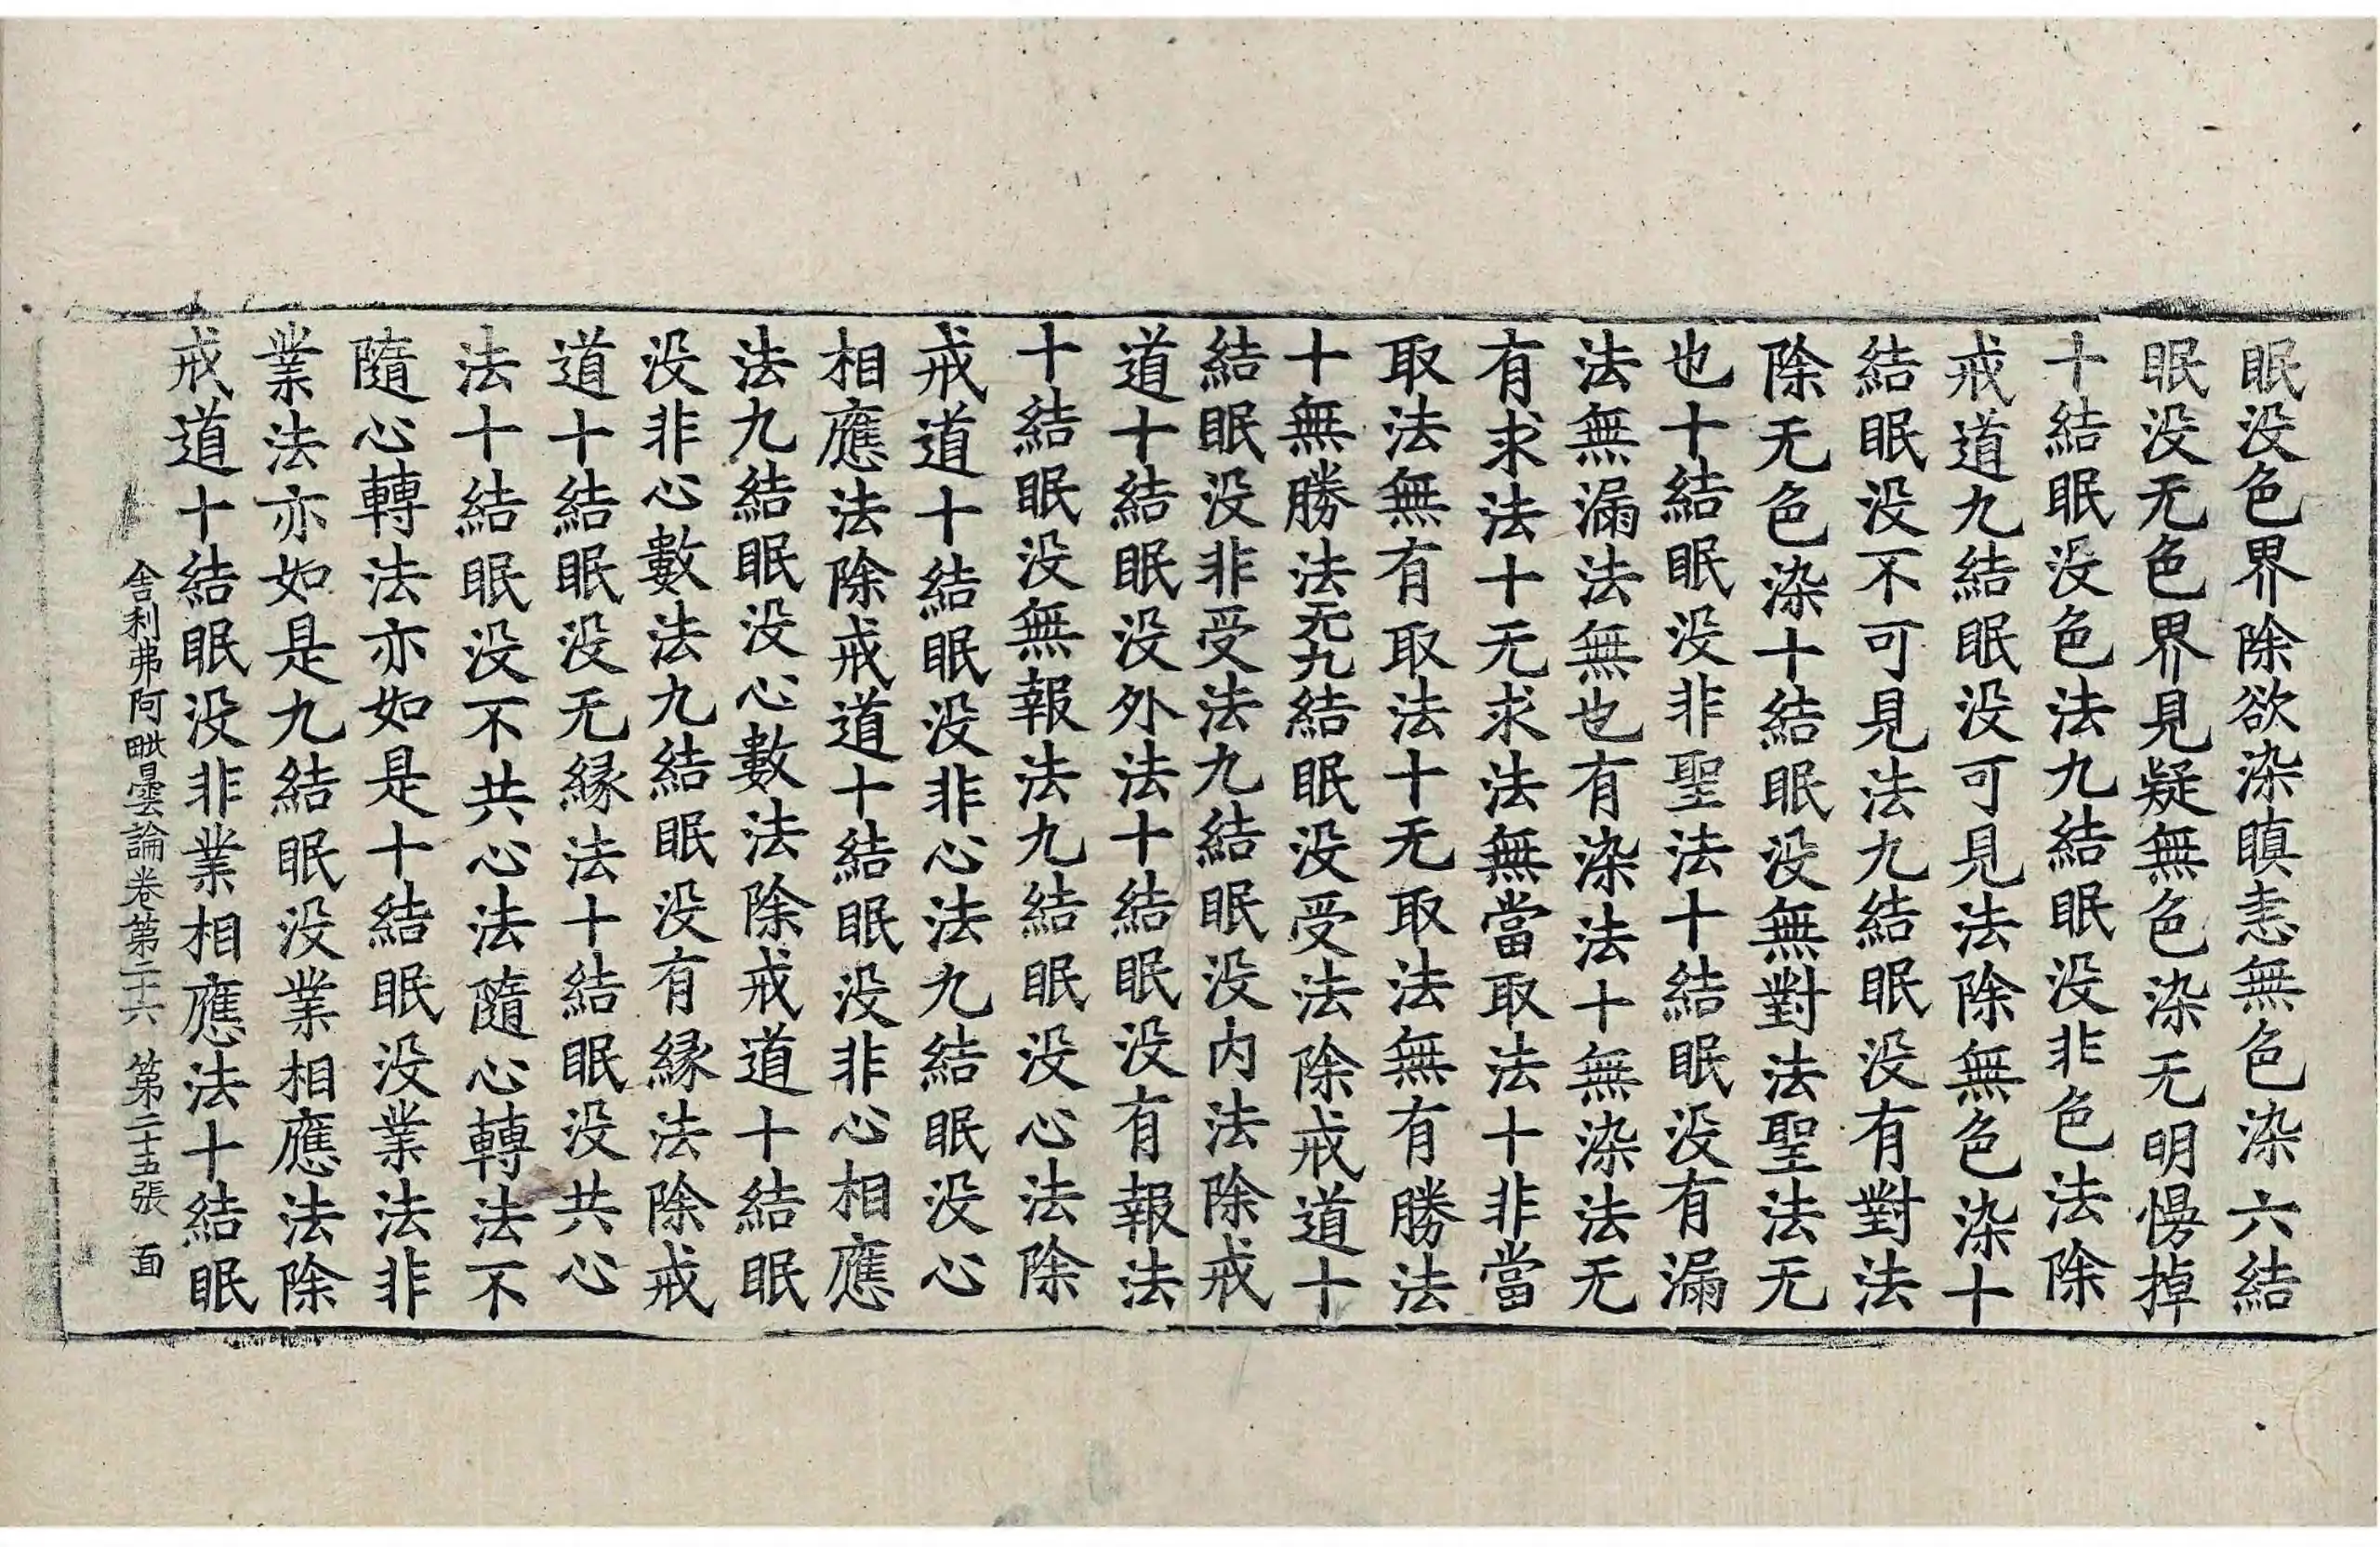 眠没色界除欲染瞋恚無色染六結
眠没无色界見疑無色染无明慢掉
十結眠没色法九結眠没非色法除
戒道九結眠没可見法除無色染十
結眠没不可見法九結眠没有對法
除无色染十結眠没無對法聖法无
也十結眠没非聖法十結眠没有漏
法無漏法無也有染法十無染法无
有求法十无求法無當取法十非當
取法無有取法十无取法無有勝法
十無勝法无九結眠没受法除戒道十
結眠没非受法九結眠没内法除戒
道十結眠没外法十結眠没有報法
十結眠没無報法九結眠没心法除
戒道十結眠没非心法九結眠没心
相應法除戒道十結眠没非心相應
法九結眠没心數法除戒道十結眠
没非心數法九結眠没有縁法除戒
道十結眠没无縁法十結眠没共心
法十結眠没不共心法隨心轉法不
隨心轉法亦如是十結眠没業法非
業法亦如是九結眠没業相應法除
戒道十結眠没非業相應法十結眠
舎利弗阿毗曇論卷第二十六　第二十五張　面